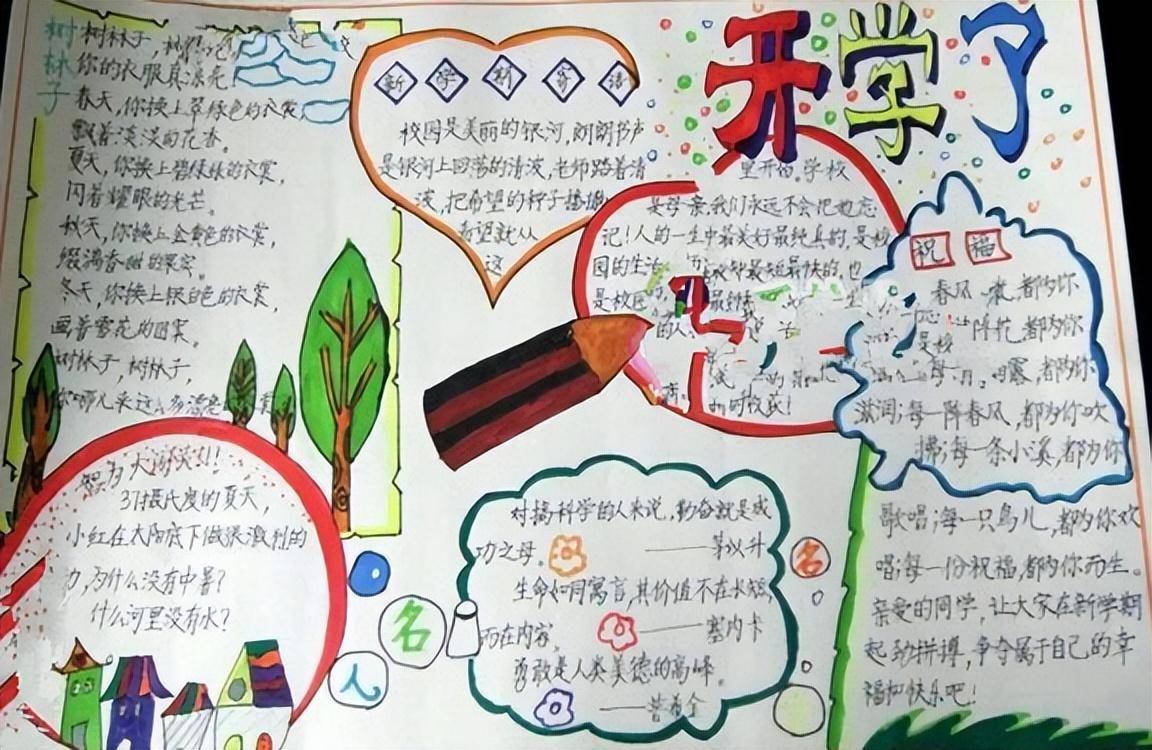 开学了
树林子
树林子,树林子
你的衣服真漂亮!
春天,你换上翠绿色的衣裳,
飘着淡淡的花香。
夏天,你换上碧绿绿的衣裳,
闪着耀眼的光芒。
秋天,你换上金黄色的衣裳,
缀满香甜的果实。
冬天,你换上银白色的衣裳,
画着雪花的图案。
树林子,树林子,
你哪儿来这么多漂亮
新学期寄语
校园是美丽的银河,朗朗书声
是银河上回荡的清波,老师踏着清
波,把希望的种子播撒
希望就从
这
里开始。学校
是母亲,我们永远不会把她忘
记!人的一生中最美好最纯真的,是校
园的生活
最短最快的,也
是校园
的人
的时
收获!
祝福
春风一吹,都为你
阵花,都为你
是
每一
露,都为你
滋润;每一阵春风,都为你吹
拂;每一条小溪,都为你
歌唱;每一只鸟儿,都为你欢
唱;每一份祝福,都为你而生。
亲爱的同学,让大家在新学期
起劲拼搏,争夺属于自己的幸
福和快乐吧!
智力大闯关!!
37摄氏度的夏天,
小红在太阳底下做很激烈的
力,为什么没有中暑?
什么河里没有水?
名人名
对搞科学的人来说,勤奋就是成
功之母。
——茅以升
生命如同寓言,其价值不在长短,
而在内容。
——塞内卡
勇敢是人类美德的高峰。
——普希金